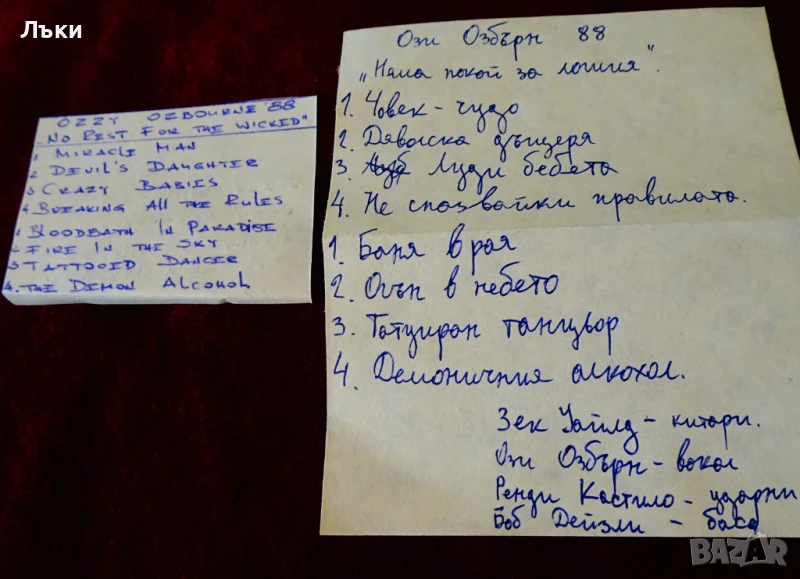 Лъки
OZZY OZBOURNE '88
"NO REST FOR THE WICKED"
1 MIRACLE MAN
2 DEVIL'S DAUGHTER
3 CRAZY BABIES
4 BREAKING ALL THE RULES
1 BLOODBATH IN PARADISE
2 FIRE IN THE SKY
3 TATTOOED DANCER
4. THE DEMON ALCOHOL
Ози Озбърн 88
„Няма покой за лошия".
1. Човек - чудо
2. Дяволска дъщеря
3. Луди бебета
4. Не спазвайки правилата.
1. Баня в рая
2. Огън в небето
3. Татуиран танцьор
4. Демоничния алкохол.
Зек Уайлд - китари.
Ози Озбърн - вокал
Ренди Кастило - ударни
Боб Дейзли - баса
BAZAR